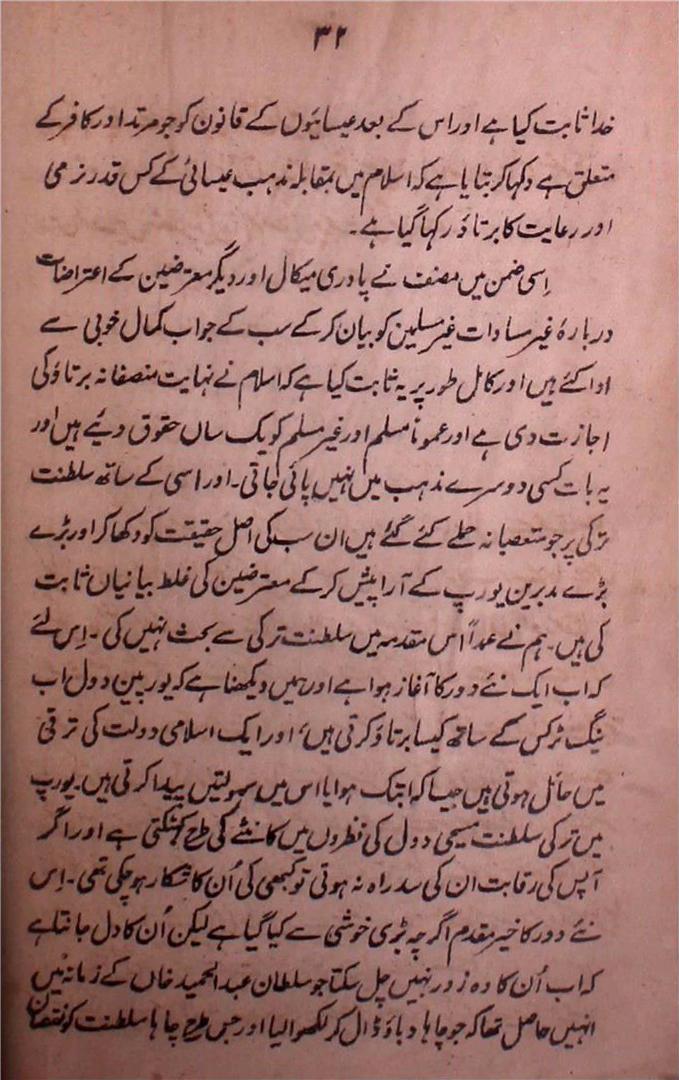 ۳۲
خدا ثابت کیا ہے اور اس کے بعد عیسائیوں کے قانون کو جو مرتد اور کافر کے
متعلق ہے دکہا کر بتایا ہے کہ اسلام میں بمقابلہ مذہب عیسائی کے کس قدر نرمی
اور رعایت کا برتاؤ رکہا گیا ہے۔
اِسی ضمن میں مصنف نے پادری میکال اور دیگر معترضین کے اعتراضات
دربارۂ غیر مساوات غیر مسلمین کو بیان کرکے سب کے جواب کمال خوبی سے
ادا کئے ہیں اور کامل طور پر یہ ثابت کیا ہے کہ اسلام نے نہایت منصفانہ برتاؤ کی
اجازت دی ہے اور عموماً مسلم اور غیر مسلم کو یک ساں حقوق دیئے ہیں اور
یہ بات کسی دوسرے مذہب میں نہیں پائی جاتی۔ اور اسی کے ساتھ سلطنت
ترکی پر جو متعصبانہ حملے کئے گئے ہیں ان سب کی اصل حقیقت کو دکھا کر اور بڑے
بڑے مدبرین یورپ کے آرا پیش کرکے معترضین کی غلط بیانیاں ثابت
کی ہیں۔ ہم نے عمداً اس مقدمہ میں سلطنت ترکی سے بحث نہیں کی۔ اِس لئے
کہ اب ایک نئے دور کا آغاز ہوا ہے اور ہمیں دیکھنا ہے کہ یورپین دول اب
ینگ ٹرکس کے ساتھ کیسا برتاؤ کرتی ہیں، اور ایک اسلامی دولت کی ترقی
میں حائل ہوتی ہیں جیسا کہ ابتک ہوا یا اس میں سہولتیں پیدا کرتی ہیں۔ یورپ
میں ترکی سلطنت مسیحی دول کی نظروں میں کانٹے کی طرح کہٹکتی ہے اور اگر
آپس کی رقابت ان کی سدراہ نہ ہوتی تو کبھی کی اُن کا شکار ہوچکی تھی۔ اِس
نئے دور کا خیر مقدم اگرچہ بڑی خوشی سے کیا گیا ہے لیکن اُن کا دل جانتا ہے
کہ اب اُن کا وہ زور نہیں چل سکتا جو سلطان عبدالحمید خاں کے زمانہ میں
انہیں حاصل تھا کہ جو چاہا دباؤ ڈال کر لکھوا لیا اور جس طرح چاہا سلطنت کو نقصان